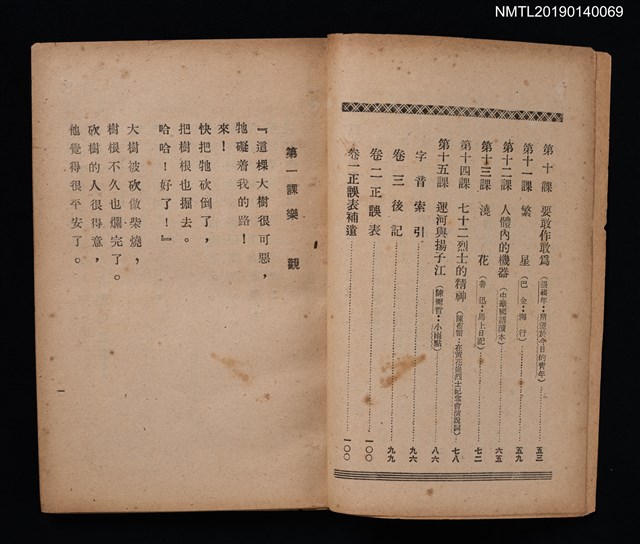 NMTL20190140069
第十課 要敢作敢為(張繼年：所望於今日的青年)……五三
第十一課 繁星(巴金：海行)……五九
第十二課 人體內的機器(中華國語讀本)……六五
第十三課 澆花(魯迅：馬上日記)……七二
第十四課 七十二烈士的精神(陳布雷：在黃花崗烈士紀念會演說詞)……七八
第十五課 運河與揚子江(陳衡哲：小雨點)……八六
字音索引……九六
卷三後記……九九
卷二正誤表……一〇〇
卷一正誤表補遺……一〇〇
第一課 樂觀
『這棵大樹很可惡，
牠礙着我的路！
來！
快把牠砍倒了，
把樹根也掘去。
哈哈！好了！』
大樹被砍做柴燒，
樹根不久也爛完了。
砍樹的人很得意，
他覺得很平安了。
一